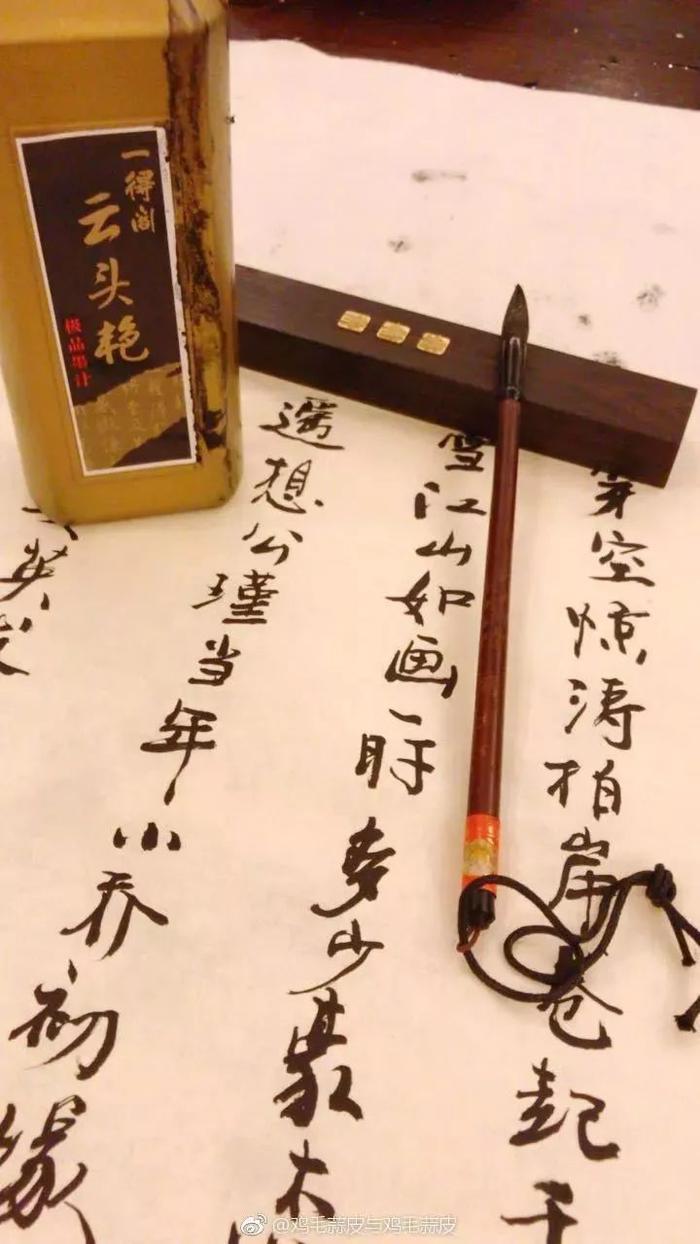 一得阁
云头艳
极品墨汁
穿空惊涛拍岸卷起千
雪江山如画一时多少
遥想公瑾当年小乔初
英发
@鸡毛蒜皮与鸡毛蒜皮